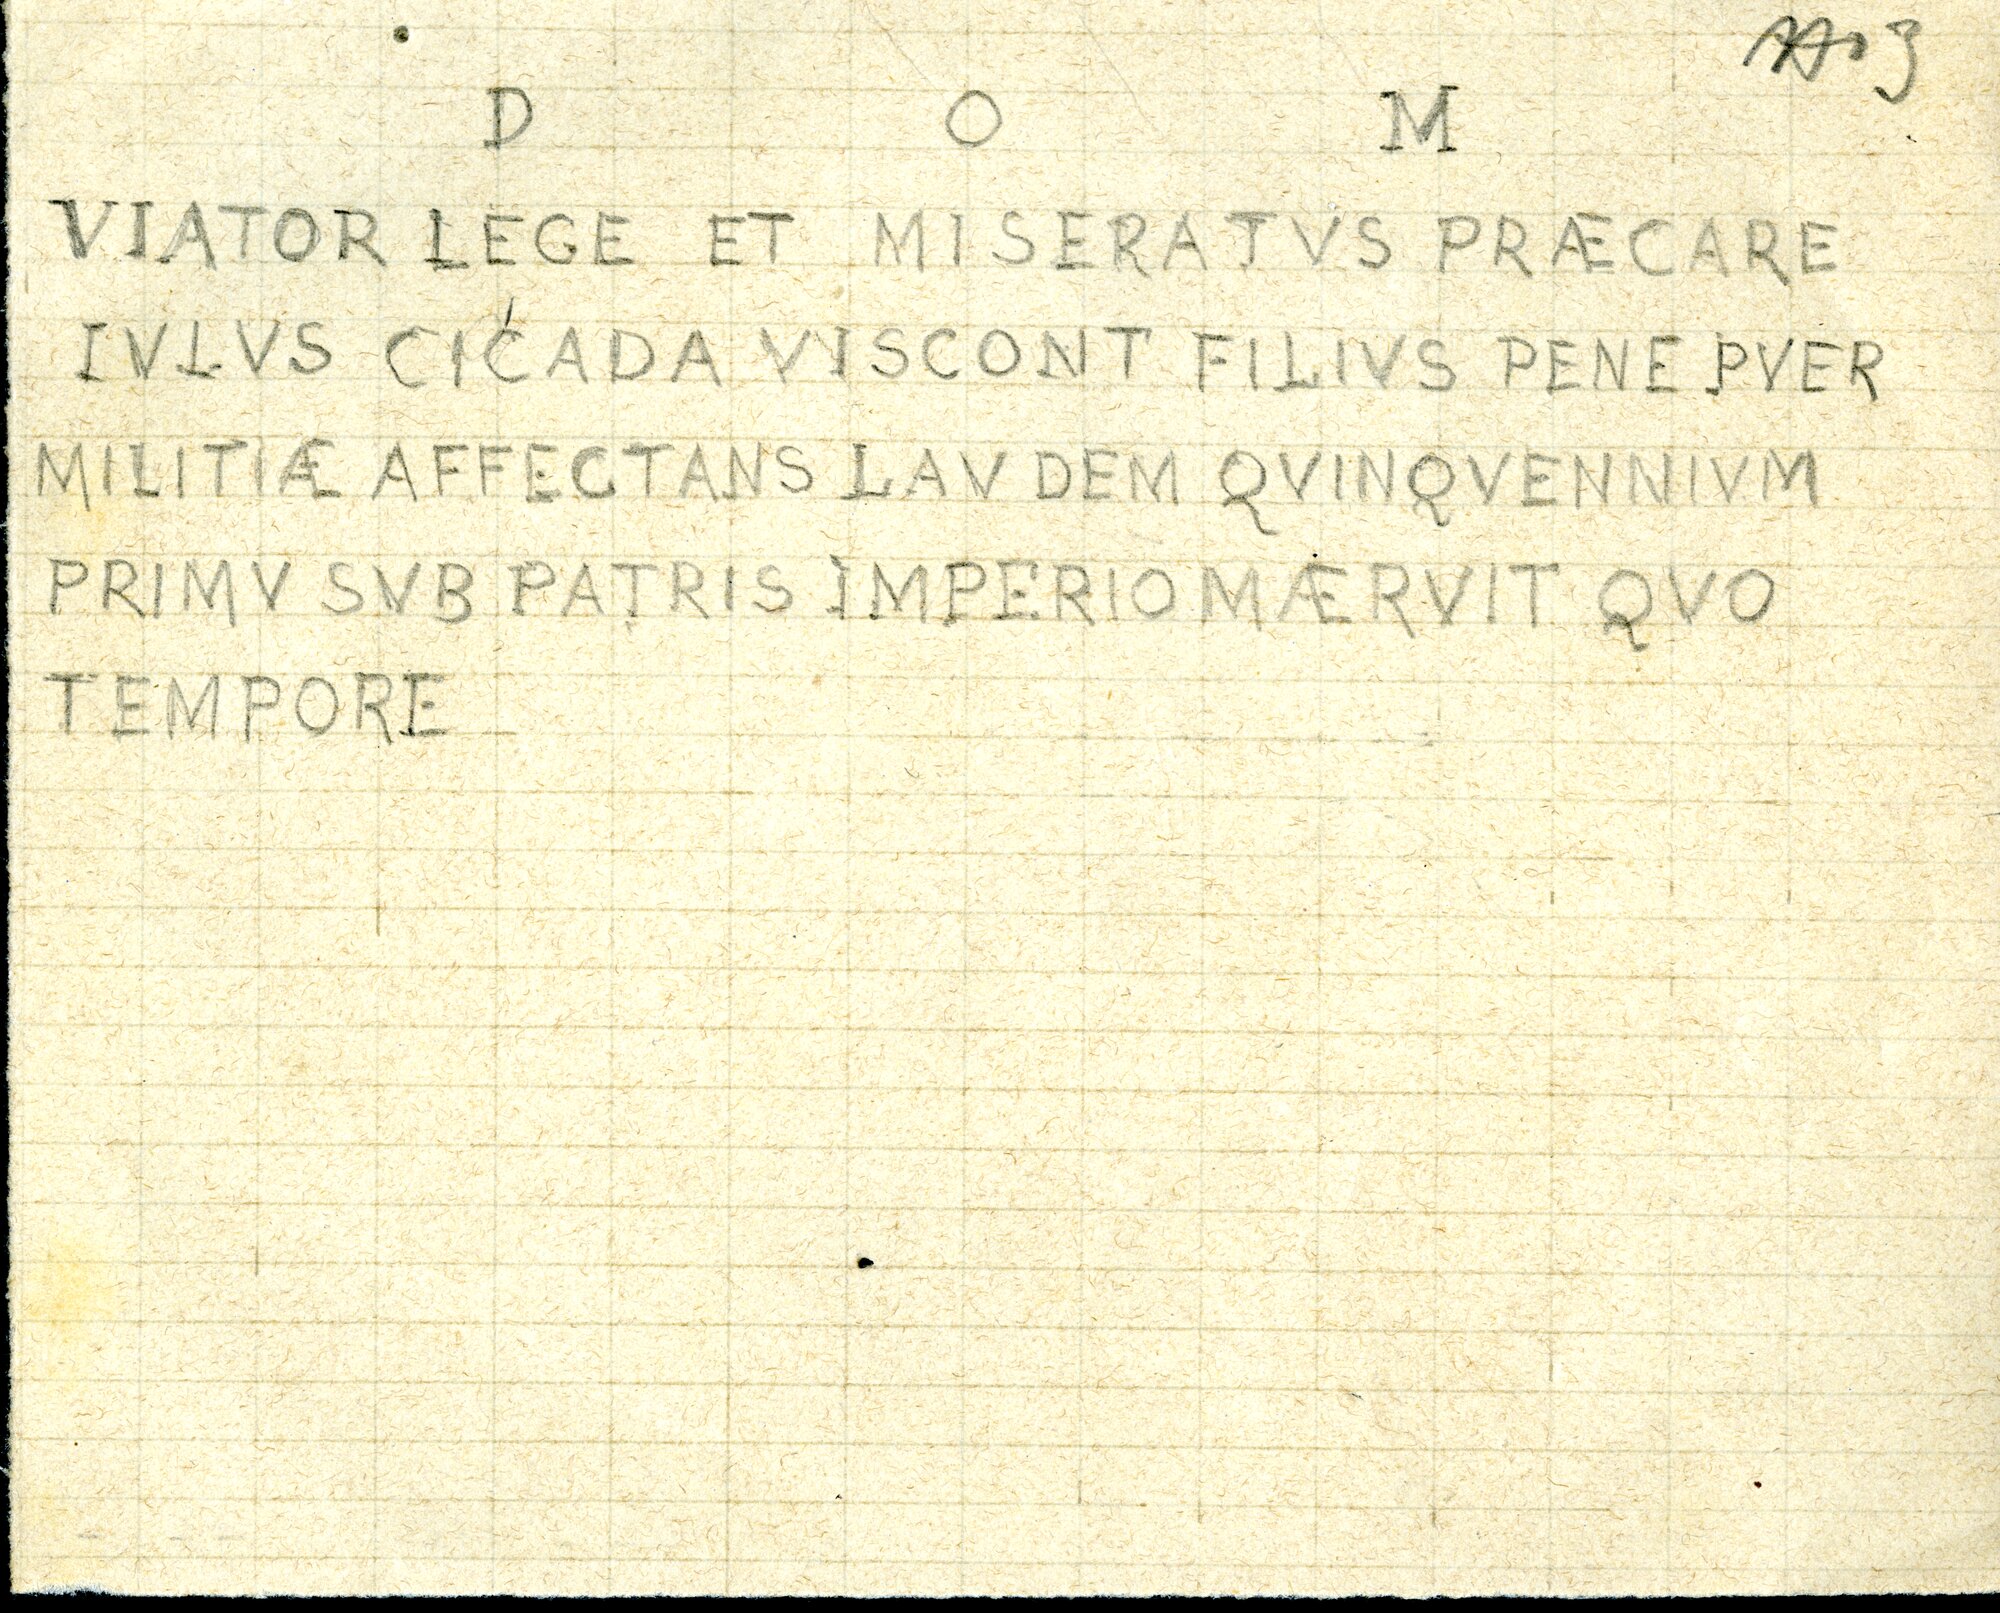 D O M
VIATOR LEGE ET MISERATVS PRÆCARE
IVLVS CICADA VISCONT FILIVS PENE PVER
MILITIÆ AFFECTANS LAVDEM QVINQVENNIVM
PRIMV SVB PATRIS IMPERIO MÆRVIT QVO
TEMPORE